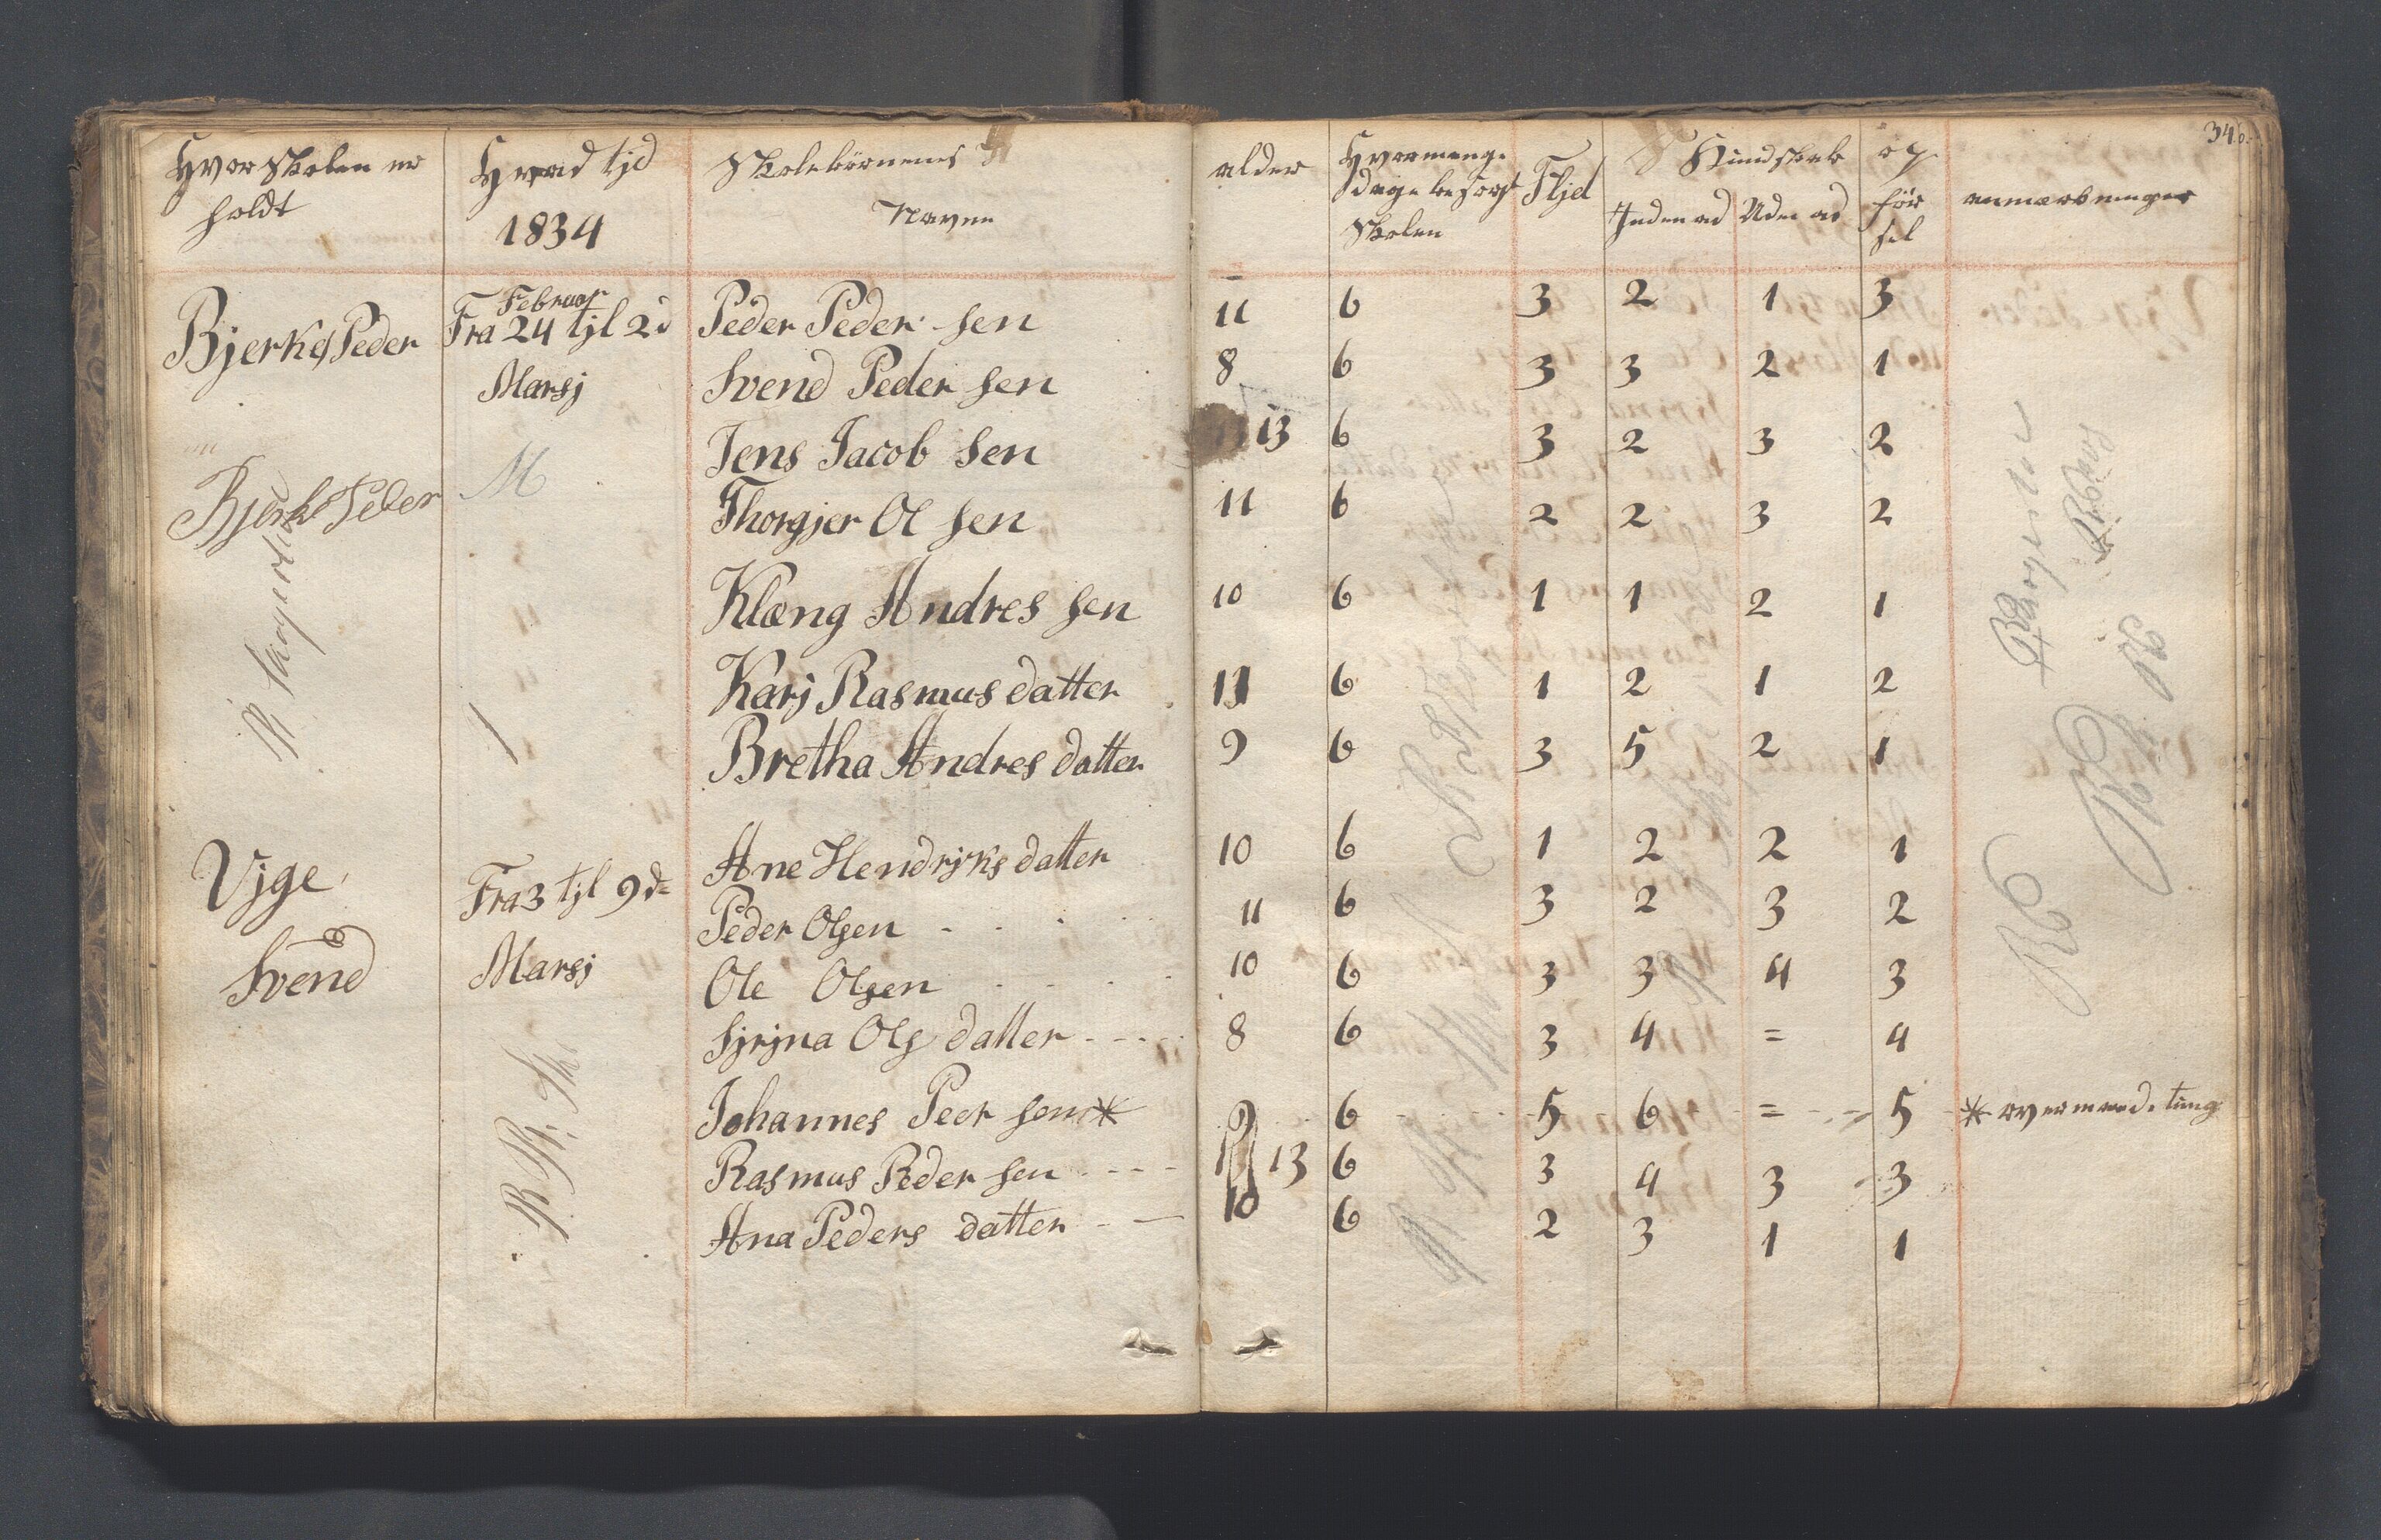 Hvor Skolen er holdt
Hvad tjd 1834
Skolebörnenes Navne
alder
Hvormange dage besögt Skolen
Fljd
Kundskab
Inden ad
Uden ad
op för sel
anmærkninger
346
Bjerke Peder
Februar
Fra 24 tjl 2d Marsj
Peder Peder sen 11 6 3 2 1 3
Svend Peder sen 8 6 3 3 2 1
Jens Jacob sen 13 6 3 2 3 2
Thorgjer Ol sen 11 6 2 2 3 2
Klæng Andres sen 10 6 1 1 2 1
Karj Rasmus datter 11 6 1 2 1 2
Bretha Andres datter 9 6 3 5 2 1
Bjerke Peder
M
Vjge Svend
Fra 3 tjl 9 d= Marsj
Ane Hendrjks datter 10 6 1 2 2 1
Peder Olsen 11 6 3 2 3 2
Ole Olsen 10 6 3 3 4 3
Sjrjna Ols datter 8 6 3 4 = 4
Johannes Peer sen * 9 6 5 6 = 5 * overmaade tung
Rasmus Peder sen 13 6 3 4 3 3
Ana Peders datter 10 6 2 3 1 1